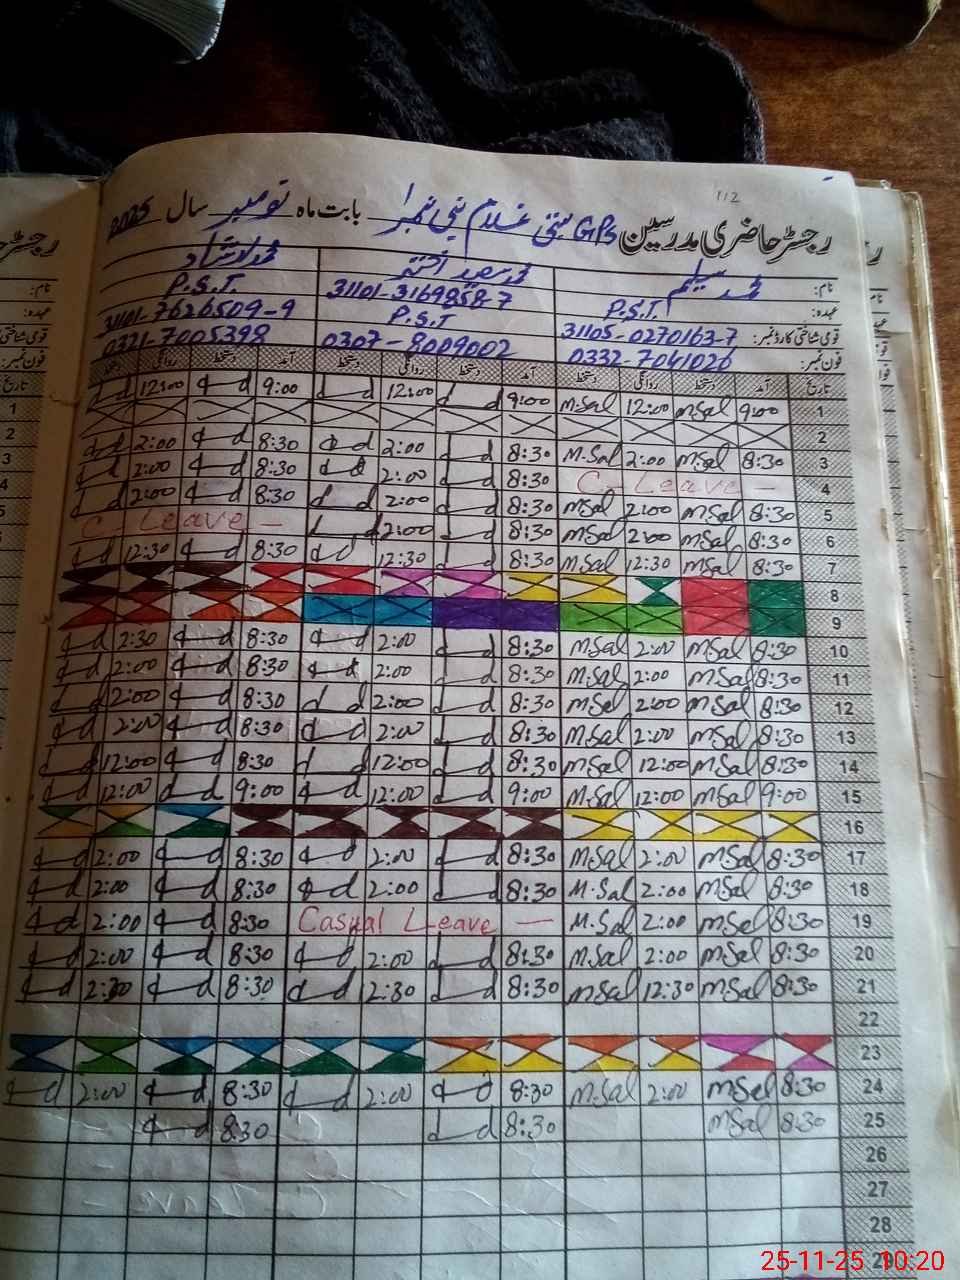 112
رجسٹر حاضری مدرسین GPS بستی غلام نبی نمبر 1 بابت ماہ نومبر سال 2025
نام: محمد سلیم محمد سعید اختر محمد ارشاد
عہدہ: P.S.T. 31101-3169858-7 P.S.T.
قومی شناختی کارڈ نمبر: 31105-0270163-7 P.S.T 31101-7626509-9
فون نمبر: 0332-7041026 0307-8009002 0321-7005398
تاریخ آمد دستخط روانگی دستخط آمد دستخط روانگی دستخط آمد دستخط روانگی دستخط
1 9:00 MSal 12:00 M.Sal 9:00 12:00 9:00 12:00
2
3 8:30 MSal 2:00 M.Sal 8:30 2:00 8:30 2:00
4 C-Leave - 8:30 2:00 8:30 2:00
5 8:30 MSal 2:00 MSal 8:30 2:00 8:30 2:00
6 8:30 MSal 2:00 MSal 8:30 2:00 C-Leave -
7 8:30 MSal 12:30 MSal 8:30 12:30 8:30 12:30
8
9
10 8:30 MSal 2:00 MSal 8:30 2:00 8:30 2:30
11 8:30 MSal 2:00 M.Sal 8:30 2:00 8:30 2:00
12 8:30 MSal 2:00 MSal 8:30 2:00 8:30 2:00
13 8:30 MSal 2:00 M.Sal 8:30 2:00 8:30 2:00
14 8:30 MSal 12:00 MSal 8:30 12:00 8:30 12:00
15 9:00 MSal 12:00 M.Sal 9:00 12:00 9:00 12:00
16
17 8:30 MSal 2:00 M.Sal 8:30 2:00 8:30 2:00
18 8:30 MSal 2:00 M.Sal 8:30 2:00 8:30 2:00
19 8:30 MSal 2:00 M.Sal Casual Leave — 8:30 2:00
20 8:30 MSal 2:00 M.Sal 8:30 2:00 8:30 2:00
21 8:30 MSal 12:30 MSal 8:30 12:30 8:30 2:30
22
23
24 8:30 MSal 2:00 M.Sal 8:30 2:00 8:30 2:00
25 8:30 MSal 8:30 8:30
26
27
28
29
25-11-25 10:20